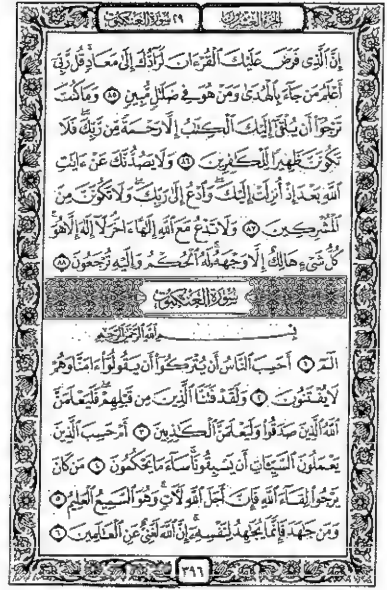 الجزء العشرون
٢٩ سورة العنكبوت
إِنَّ الَّذِى فَرَضَ عَلَيْكَ الْقُرْءَانَ لَرَآدُّكَ إِلَىٰ مَعَادٍ ۚ قُل رَّبِّىٓ
أَعْلَمُ مَن جَآءَ بِالْهُدَىٰ وَمَنْ هُوَ فِى ضَلَٰلٍ مُّبِينٍ ٨٥ وَمَا كُنتَ
تَرْجُوٓا۟ أَن يُلْقَىٰٓ إِلَيْكَ الْكِتَٰبُ إِلَّا رَحْمَةً مِّن رَّبِّكَ ۖ فَلَا
تَكُونَنَّ ظَهِيرًا لِّلْكَٰفِرِينَ ٨٦ وَلَا يَصُدُّنَّكَ عَنْ ءَايَٰتِ
اللَّهِ بَعْدَ إِذْ أُنزِلَتْ إِلَيْكَ ۖ وَادْعُ إِلَىٰ رَبِّكَ ۖ وَلَا تَكُونَنَّ مِنَ
الْمُشْرِكِينَ ٨٧ وَلَا تَدْعُ مَعَ اللَّهِ إِلَٰهًا ءَاخَرَ ۘ لَآ إِلَٰهَ إِلَّا هُوَ ۚ
كُلُّ شَىْءٍ هَالِكٌ إِلَّا وَجْهَهُۥ ۚ لَهُ الْحُكْمُ وَإِلَيْهِ تُرْجَعُونَ ٨٨
سورة العنكبوت
بِسْمِ اللَّهِ الرَّحْمَٰنِ الرَّحِيمِ
الٓمٓ ١ أَحَسِبَ النَّاسُ أَن يُتْرَكُوٓا۟ أَن يَقُولُوٓا۟ ءَامَنَّا وَهُمْ
لَا يُفْتَنُونَ ٢ وَلَقَدْ فَتَنَّا الَّذِينَ مِن قَبْلِهِمْ ۖ فَلَيَعْلَمَنَّ
اللَّهُ الَّذِينَ صَدَقُوا۟ وَلَيَعْلَمَنَّ الْكَٰذِبِينَ ٣ أَمْ حَسِبَ الَّذِينَ
يَعْمَلُونَ السَّيِّـَٔاتِ أَن يَسْبِقُونَا ۚ سَآءَ مَا يَحْكُمُونَ ٤ مَن كَانَ
يَرْجُوا۟ لِقَآءَ اللَّهِ فَإِنَّ أَجَلَ اللَّهِ لَءَاتٍ ۚ وَهُوَ السَّمِيعُ الْعَلِيمُ ٥
وَمَن جَٰهَدَ فَإِنَّمَا يُجَٰهِدُ لِنَفْسِهِۦٓ ۚ إِنَّ اللَّهَ لَغَنِىٌّ عَنِ الْعَٰلَمِينَ ٦
٣٩٦